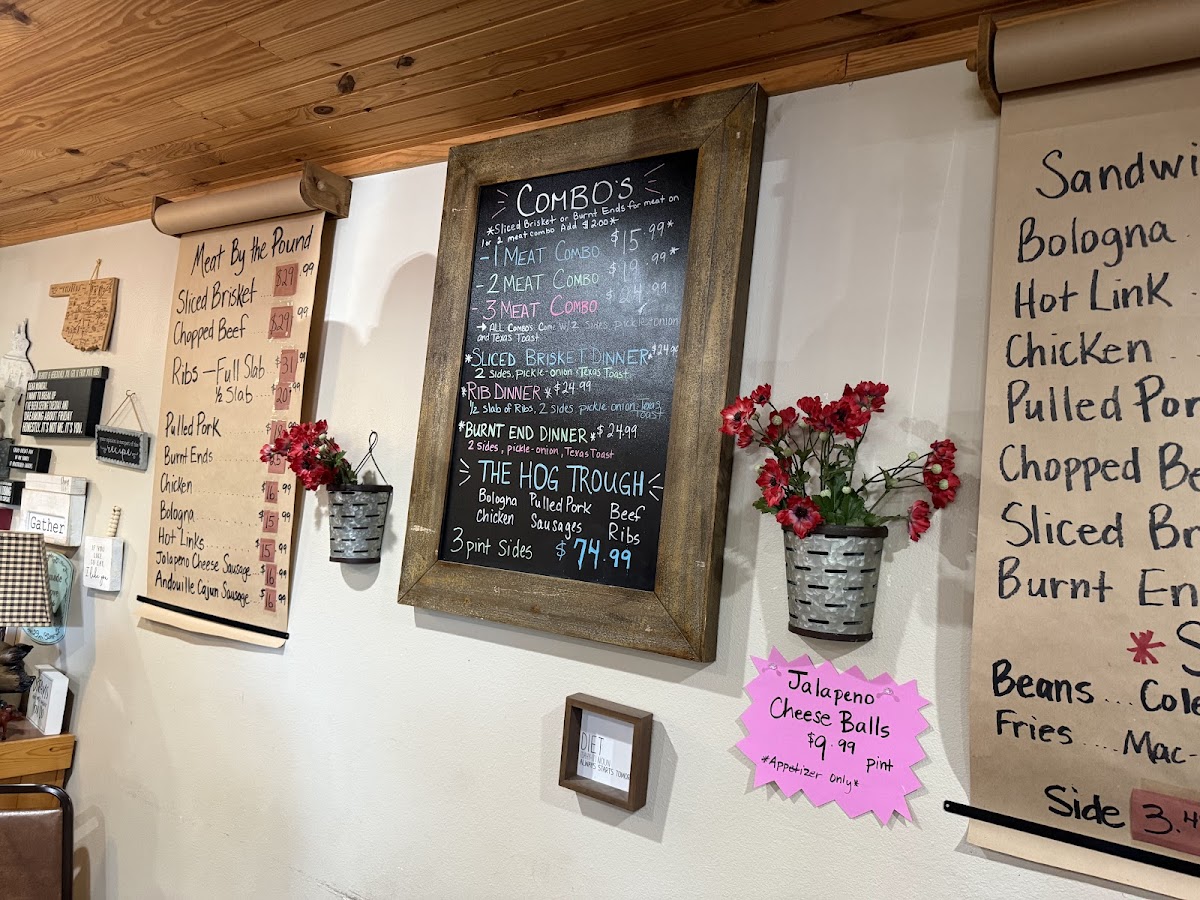 Meat By the Pound
Sliced Brisket ... $29.99
Chopped Beef ... $29.99
Ribs — Full Slab $31.99
½ Slab $20
Pulled Pork
Burnt Ends
Chicken ... $16.99
Bologna ... $15.99
Hot Links ... $15.99
Jalapeno Cheese Sausage $16.99
Andouille Cajun Sausage $16.99
COMBO'S
*Sliced Brisket or Burnt Ends for meat on
1 or 2 meat combo Add $2.00*
-1 MEAT COMBO $15.99*
-2 MEAT COMBO $19.99*
-3 MEAT COMBO $24.99
→ ALL COMBO'S COME W/ 2 SIDES, pickle-onion
and Texas Toast
*SLICED BRISKET DINNER* $24.99
2 sides, pickle-onion, Texas Toast
*RIB DINNER* $24.99
½ slab of Ribs, 2 sides, pickle-onion, Texas
Toast
*BURNT END DINNER* $24.99
2 Sides, pickle-onion, Texas Toast
THE HOG TROUGH
Bologna Pulled Pork Beef
Chicken Sausages Ribs
3 pint Sides $74.99
Jalapeno
Cheese Balls
$9.99
pint
*Appetizer only*
DIET
ALWAYS STARTS
Bologna
Hot Link
Chicken
Pulled
Chopped
Sliced
Burnt
*
Beans ...
Fries .... Mac-
Side 3.4
DEAR MONDAY,
I WANT TO BREAK UP.
I'VE BEEN SEEING TUESDAY AND
DREAMING ABOUT FRIDAY.
HONESTLY, IT'S NOT ME. IT'S YOU.
recipe
Gather